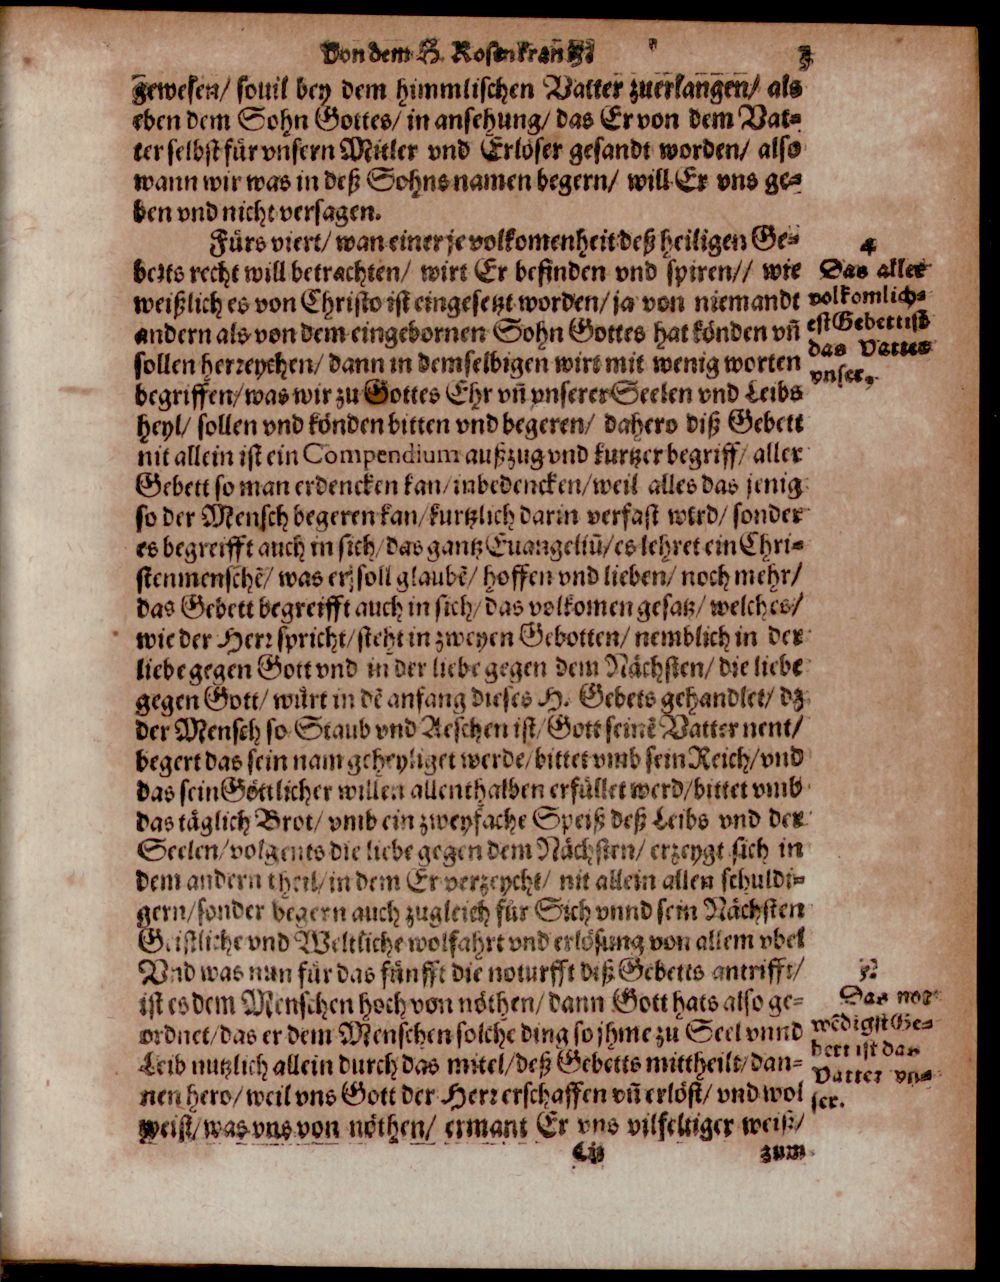 Von dem H. Rosenkrantz. 3
gewesen/ souil bey dem himmlischen Vatter zuerlangen/ als
eben dem Sohn Gottes/ in ansehung/ das Er von dem Vat-
ter selbst für vnsern Mitler vnd Erlöser gesandt worden/ also
wann wir was in deß Sohns namen begern/ will Er vns ge-
ben vnd nicht versagen.
Fürs viert/ wan einer je volkomenheit deß heiligen Ge-
betts recht will betrachten/ wirt Er befinden vnd spiren// wie
weißlich es von Christo ist eingesetzt worden/ ja von niemandt
andern als von dem eingebornen Sohn Gottes hat könden vñ
sollen herreychen/ dann in demselbigen wirt mit wenig worten
begriffen/ was wir zu Gottes Ehr vñ vnserer Seelen vnd Leibs
heyl/ sollen vnd könden bitten vnd begeren/ dahero diß Gebett
nit allein ist ein Compendium außzug vnd kurtzer begriff/ aller
Gebett so man erdencken kan/ inbedencken/ weil alles das jenig
so der Mensch begeren kan/ kurtzlich darin verfast wird/ sonder
es begreifft auch in sich/ das gantz Euangeliū/ es lehret ein Chri-
stenmenschē/ was er soll glaubē/ hoffen vnd lieben/ noch mehr/
das Gebett begreifft auch in sich/ das volkomen gesatz/ welches/
wie der Herr spricht/ steht in zweyen Gebotten/ nemblich in der
liebe gegen Gott vnd in der liebe gegen dem Nächsten/ die liebe
gegen Gott/ würt in dē anfang dieses H. Gebets gehandlet/ dz
der Mensch so Staub vnd Aeschen ist/ Gott seinē Vatter nent/
begert das sein nam geheyliget werde/ bittet vmb sein Reich/ vnd
das sein Göttlicher willen allenthalben erfüllet werd/ bittet vmb
das täglich Brot/ vmb ein zweyfache Speiß deß Leibs vnd der
Seelen/ volgents die liebe gegen dem Nächsten/ erzeygt sich in
dem andern theil/ in dem Er verzeycht/ nit allein allen schuldi-
gern/ sonder begern auch zugleich für Sich vnnd sein Nächsten
Geistliche vnd Weltliche wolfahrt vnd erlösung von allem vbel
Vnd was nun für das fünfft die noturfft diß Gebetts antrifft/
ist es dem Menschen hoch von nöthen/ dann Gott hats also ge-
ordnet/ das er dem Menschen solche ding so jhme zu Seel vnnd
Leib nutzlich allein durch das mitel/ deß Gebetts mittheilt/ dan-
nen hero/ weil vns Gott der Herr erschaffen vñ erlöst/ vnd wol
weist/ was vns von nöthen/ ermant Er vns vilfeltiger weiß/
zum
4
Das aller
volkomlich-
est Gebett ist
das Vatter
vnser.
5.
Das not
wēdigst Ge-
bett ist das
Vatter vn-
ser.